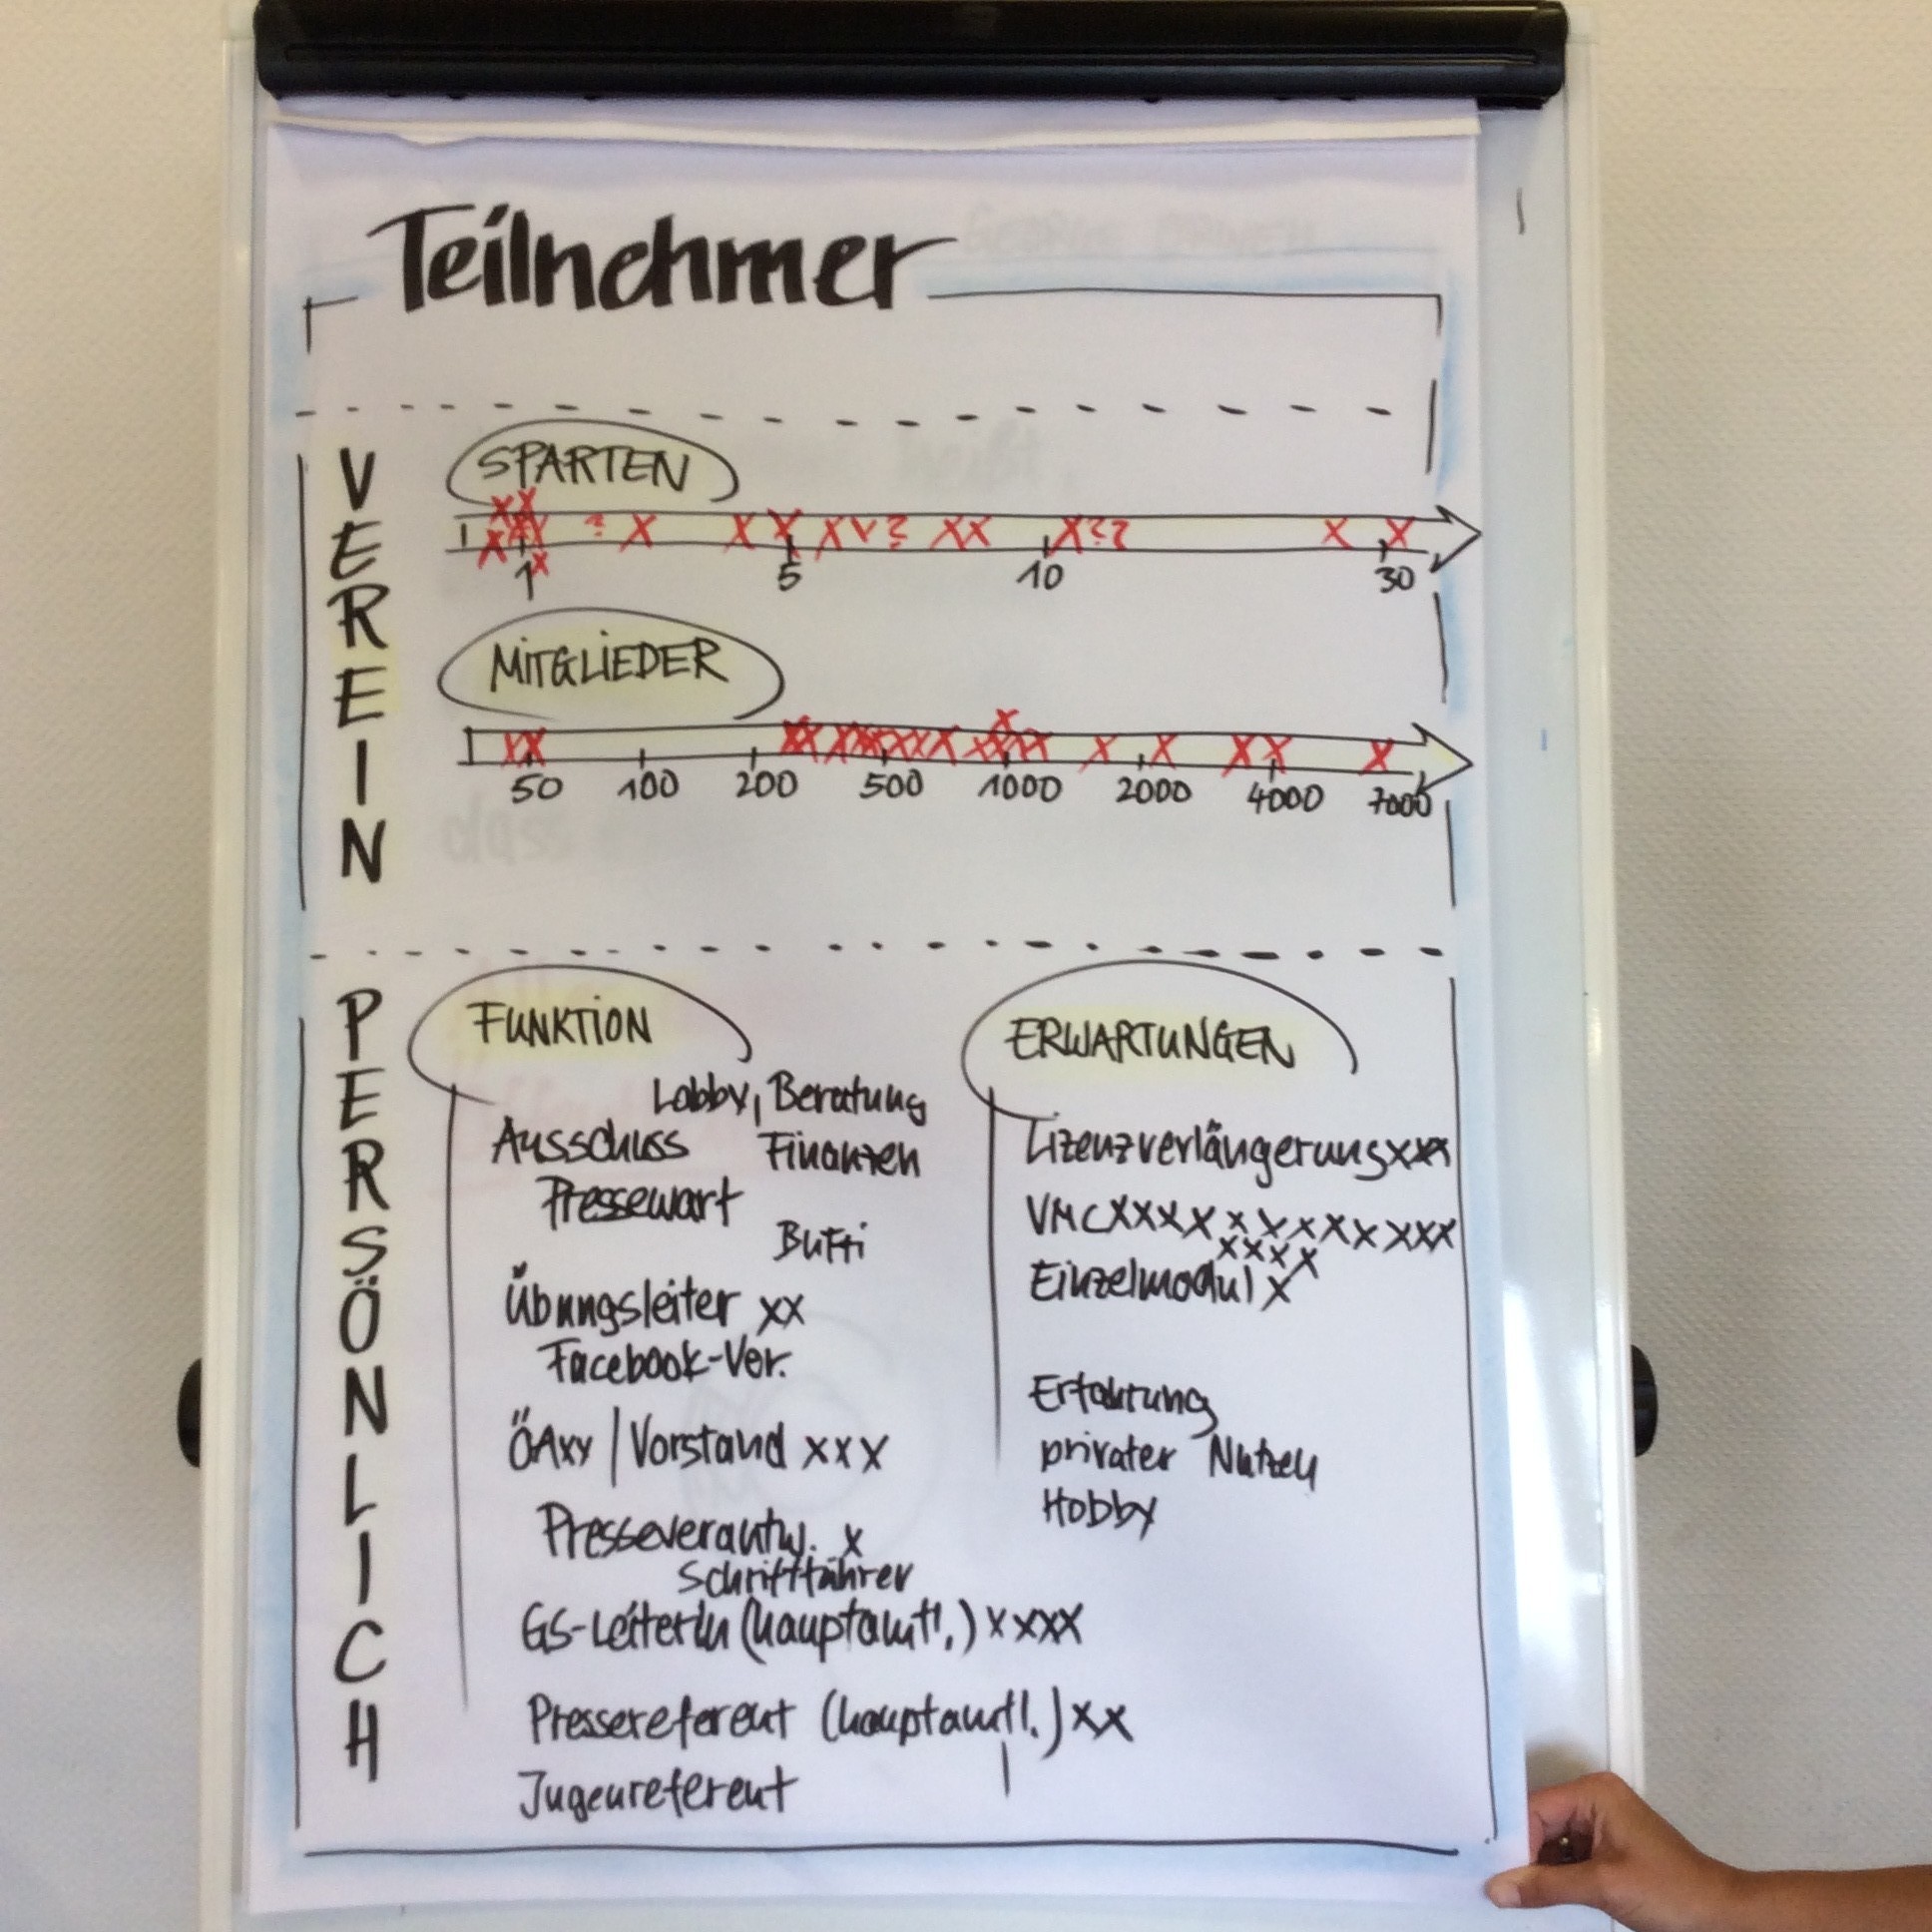 Teilnehmer
VEREIN
SPARTEN
1 5 10 30
MITGLIEDER
50 100 200 500 1000 2000 4000 7000
PERSÖNLICH
FUNKTION
Lobby, Beratung
Ausschuss Finanzen
Pressewart
Bufti
Übungsleiter xx
Facebook-Ver.
ÖAxx | Vorstand xxx
Presseverantw. x
Schriftführer
GS-LeiterIn (hauptamtl.) xxxx
Pressereferent (hauptamtl.) xx
Jugenreferent
ERWARTUNGEN
Lizenzverlängerung xxx
VMC xxxxxxxxxxxxx
xxxx
Einzelmodul x
Erfahrung
privater Nutzen
Hobby